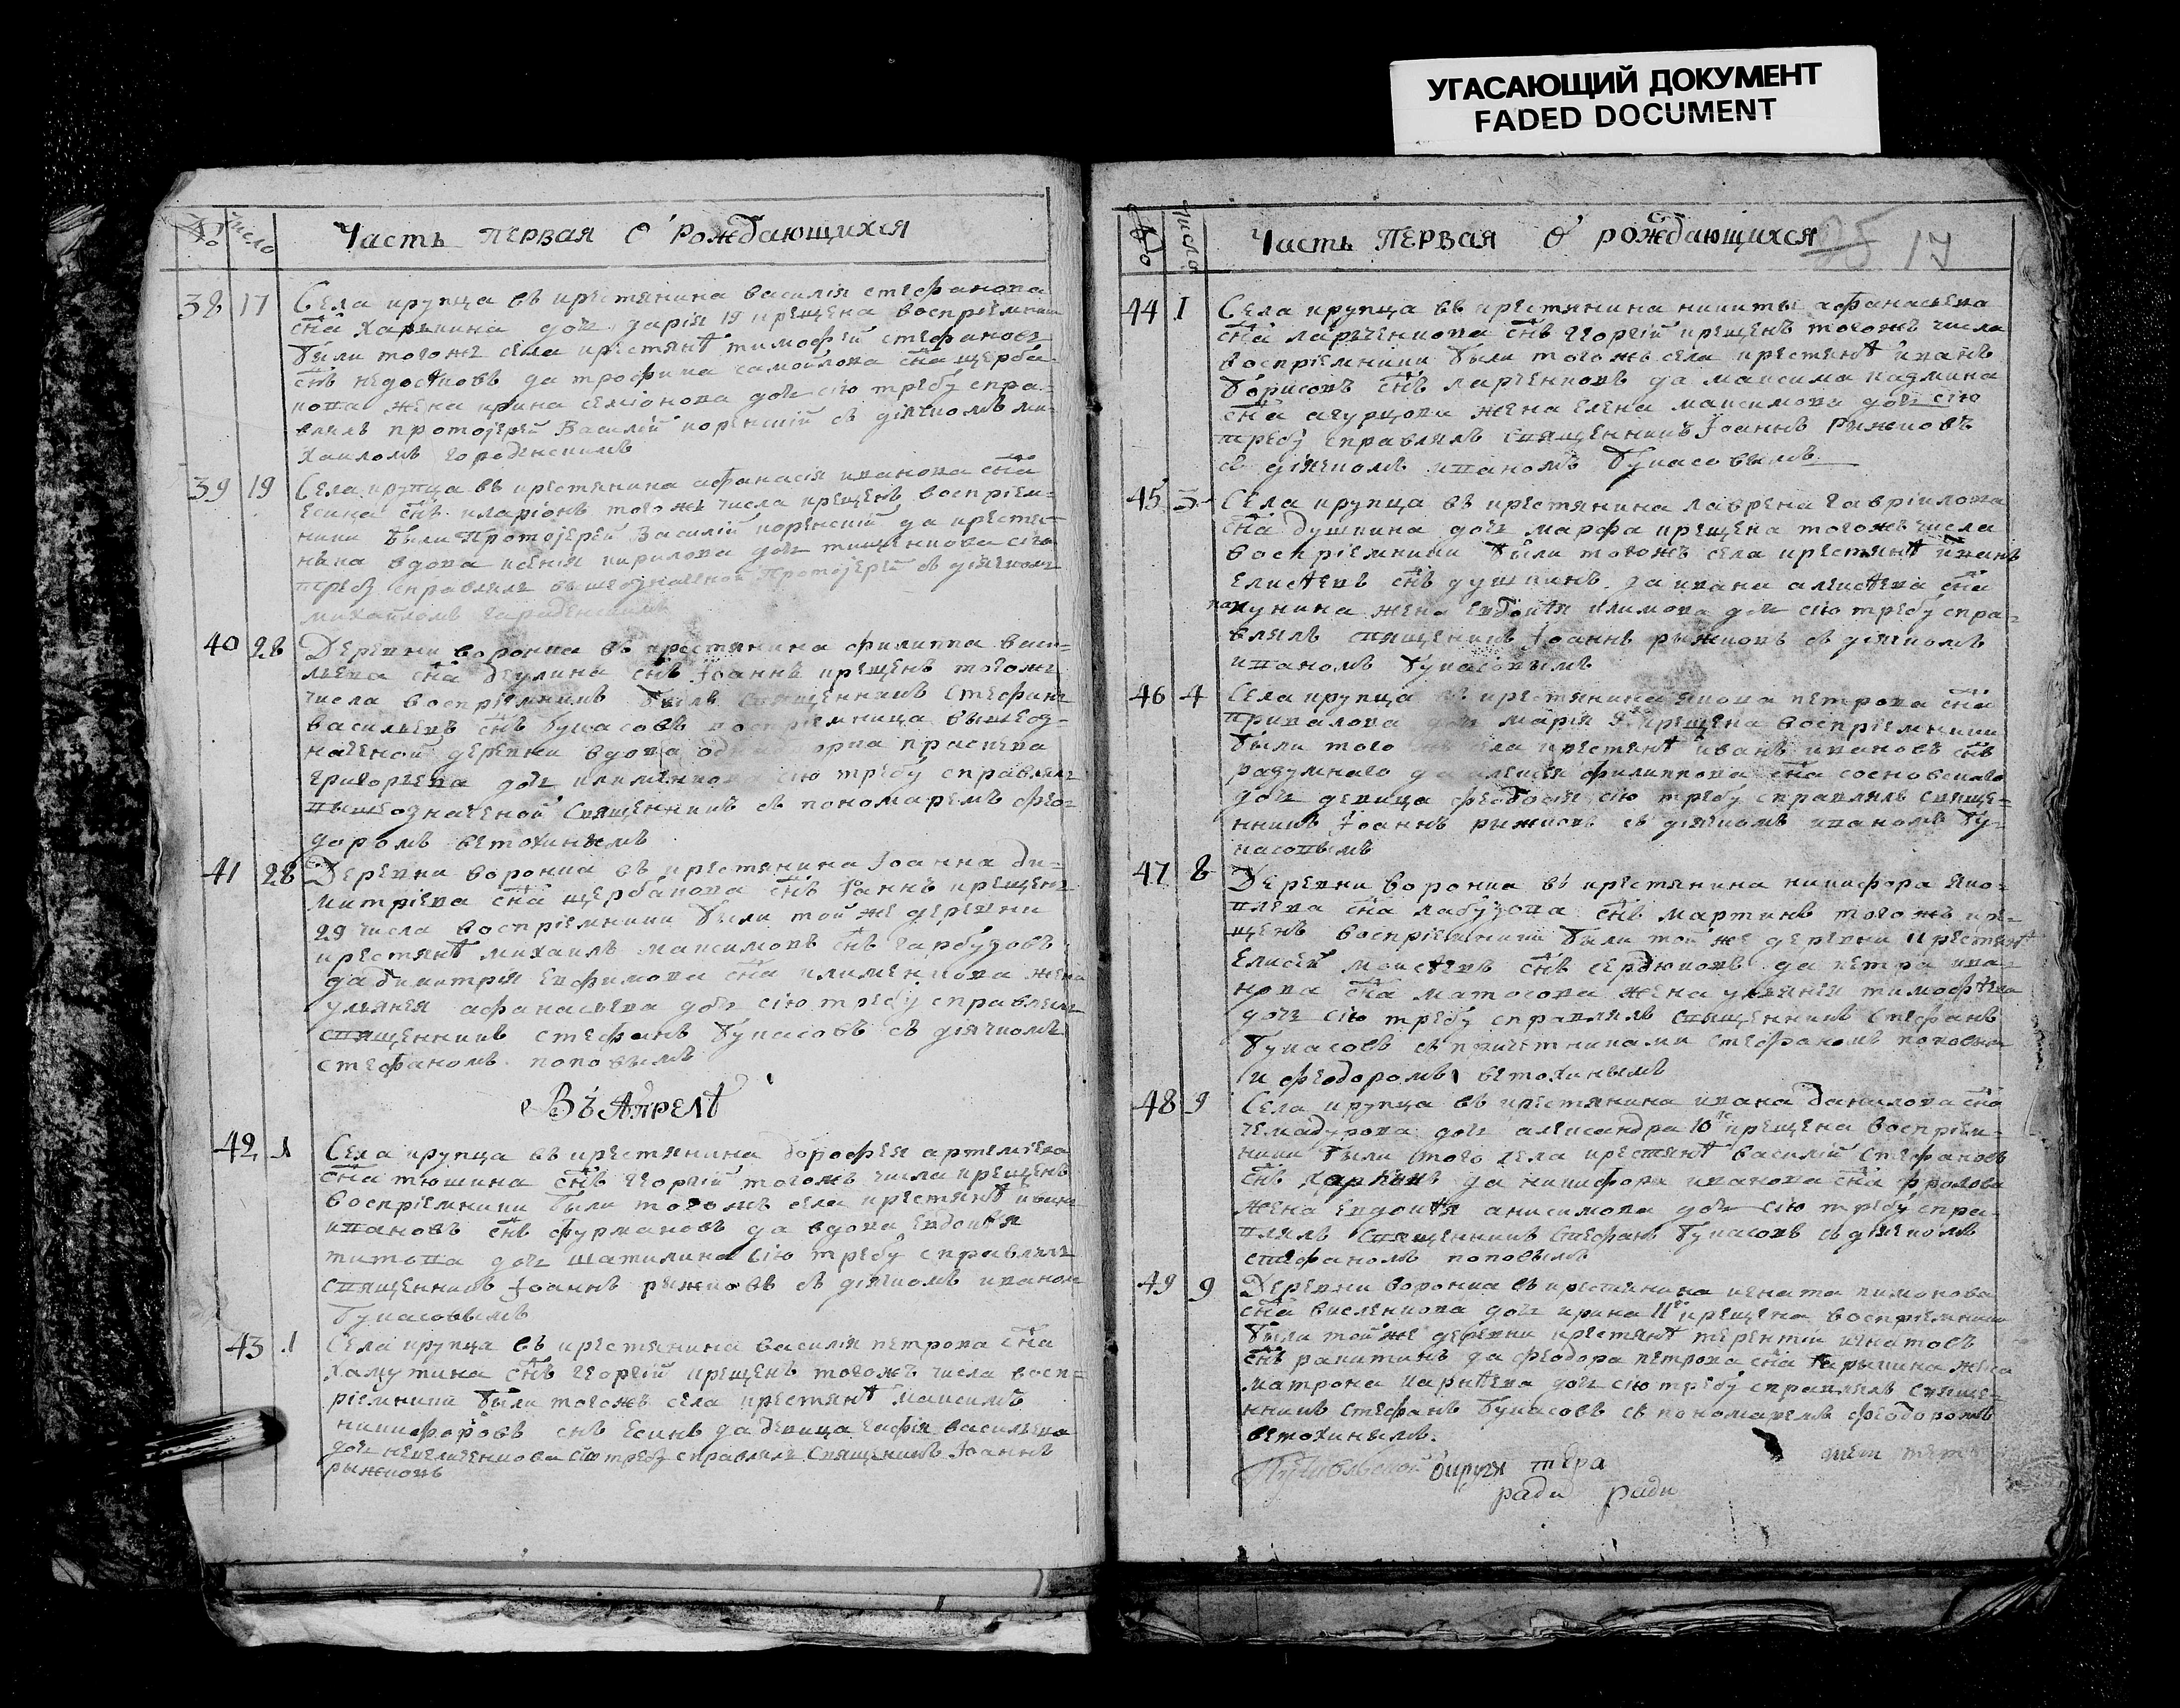 УГАСАЮЩИЙ ДОКУМЕНТ
FADED DOCUMENT
№ число Часть первая о рождающихся
38 17 Села крупца въ крестянина василія стефанова
сна харькина дочь дарія 19 крещена воспріемники
были тогожъ села крестянѣ тимофѣй стефановъ
снъ недосѣковъ да трофима самойлова сна щерба
кова жена ирина семіонова дочь сію требу спра
влялъ протоіерей Василій коренскій съ діячкомъ ми
хаиломъ городенскимъ
39 19 Села крупца въ крестянина афанасія иванова сна
есина снъ иларіонъ тогожъ числа крещенъ воспріем
ники были Протоіерей Василій коренскій да крестян
нина вдова ксенія кирилова дочь тищенкова сію
требу справлялъ вышеозначеной Протоіерей съ діячком
михайломъ гароденскимъ
40 28 Деревни воронка въ крестянина филиппа васи
льева сна деулина снъ Іоаннъ крещенъ тогожъ
числа воспріемникъ былъ священникъ Стефанъ
васильевъ снъ букасовъ воспріемница вышеоз
наченой деревни вдова праскева
григорьева дочь клименкова сію требу справлялъ
вышеозначеной Священникъ съ пономаремъ фео
доромъ ветохинымъ
41 28 Деревни воронка въ крестянина Іоанна ди
митріева сна щербакова снъ Іоаннъ крещенъ
29 числа воспріемники были той же деревни
крестянѣ михаилъ максимовъ снъ гарбузовъ
да димитрія Евфимова сна клименкова жена
ульянея афанасьева дочь сію требу справлялъ
священникъ стефанъ букасовъ съ діячкомъ
стефаномъ поповымъ
Въ Апрелѣ
42 1 Села крупца въ крестянина дорофея артеміева
сна тюшина снъ георгій тогожъ числа крещенъ
воспріемники были тогожъ села крестянѣ иванъ
ивановъ снъ фурмановъ да вдова Евдокѣя
титова дочь шатилина сію требу справлялъ
священникъ Іоаннъ рыжковъ съ діячкомъ иваном
букасовымъ
43 1 Села крупца въ крестянина василія петрова сна
хамутина снъ георгій крещенъ тогожъ числа восп
ріемники были тогожъ села крестянѣ максимъ
никифоровъ снъ Есинъ да девица агафія васильева
дочь сію требу справлялъ Священникъ Іоаннъ
рыжковъ
№ число Часть первая о рождающихся 25 17
44 1 Села крупца въ крестянина никиты афанасьева
сна ларченкова снъ георгій крещенъ тогожъ числа
воспріемники были тогожъ села крестянѣ иванъ
борисовъ снъ ларченковъ да максима казмина
сна агурцова жена елена максимова дочь сію
требу справлялъ священникъ Іоаннъ Рыжковъ
съ діячкомъ иваномъ букасовымъ
45 3 Села крупца въ крестянина лаврена гавріилова
сна душкина дочь марфа крещена тогожъ числа
воспріемники были тогожъ села крестянѣ иванъ
елисѣевъ снъ душкинъ да ивана алексѣева сна
какунина жена Евдокѣя климова дочь сію требу спра
влялъ священникъ Іоаннъ рыжковъ съ діячкомъ
иваномъ букасовымъ
46 4 Села крупца въ крестянина якова петрова сна
привалова дочь марія крещена воспріемники
были того жъ села крестянѣ иванъ ивановъ снъ
разумнаго да алексея филиппова сна сосновскаго
дочь девица феодосія сію требу справлялъ свяще
нникъ Іоаннъ рыжковъ съ діячкомъ иваномъ бу
касовымъ
47 8 Деревни воронка въ крестянина никифора яко
влева сна лабузова снъ мартинъ тогожъ кре
щенъ воспріемники были той же деревни крестянѣ
Елисей моисѣевъ снъ сердюковъ да петра ива
нова сна матосова жена ульянія тимофѣева
дочь сію требу справлялъ священникъ Стефанъ
букасовъ съ причетниками стефаномъ поповым
и феодоромъ ветохинымъ
48 9 Села крупца въ крестянина ивана данилова сна
чемадурова дочь александра 10го крещена воспріем
ники были того села крестянѣ василій стефановъ
снъ харкинъ да никифора иванова сна фролова
жена Евдокѣя анисимова дочь сію требу спра
влялъ священникъ Стефанъ букасовъ съ діячкомъ
стефаномъ поповымъ
49 9 Деревни воронка въ крестянина игната пимонова
сна висленкова дочь ирина 11го крещена воспріемники
были той же деревни крестянѣ терентій игнатовъ
снъ ракитинъ да феодора петрова сна жена
матрона дочь сію требу справлялъ свяще
нникъ стефанъ букасовъ съ пономаремъ феодоромъ
ветохинымъ.
Путивльской округи
ради ради